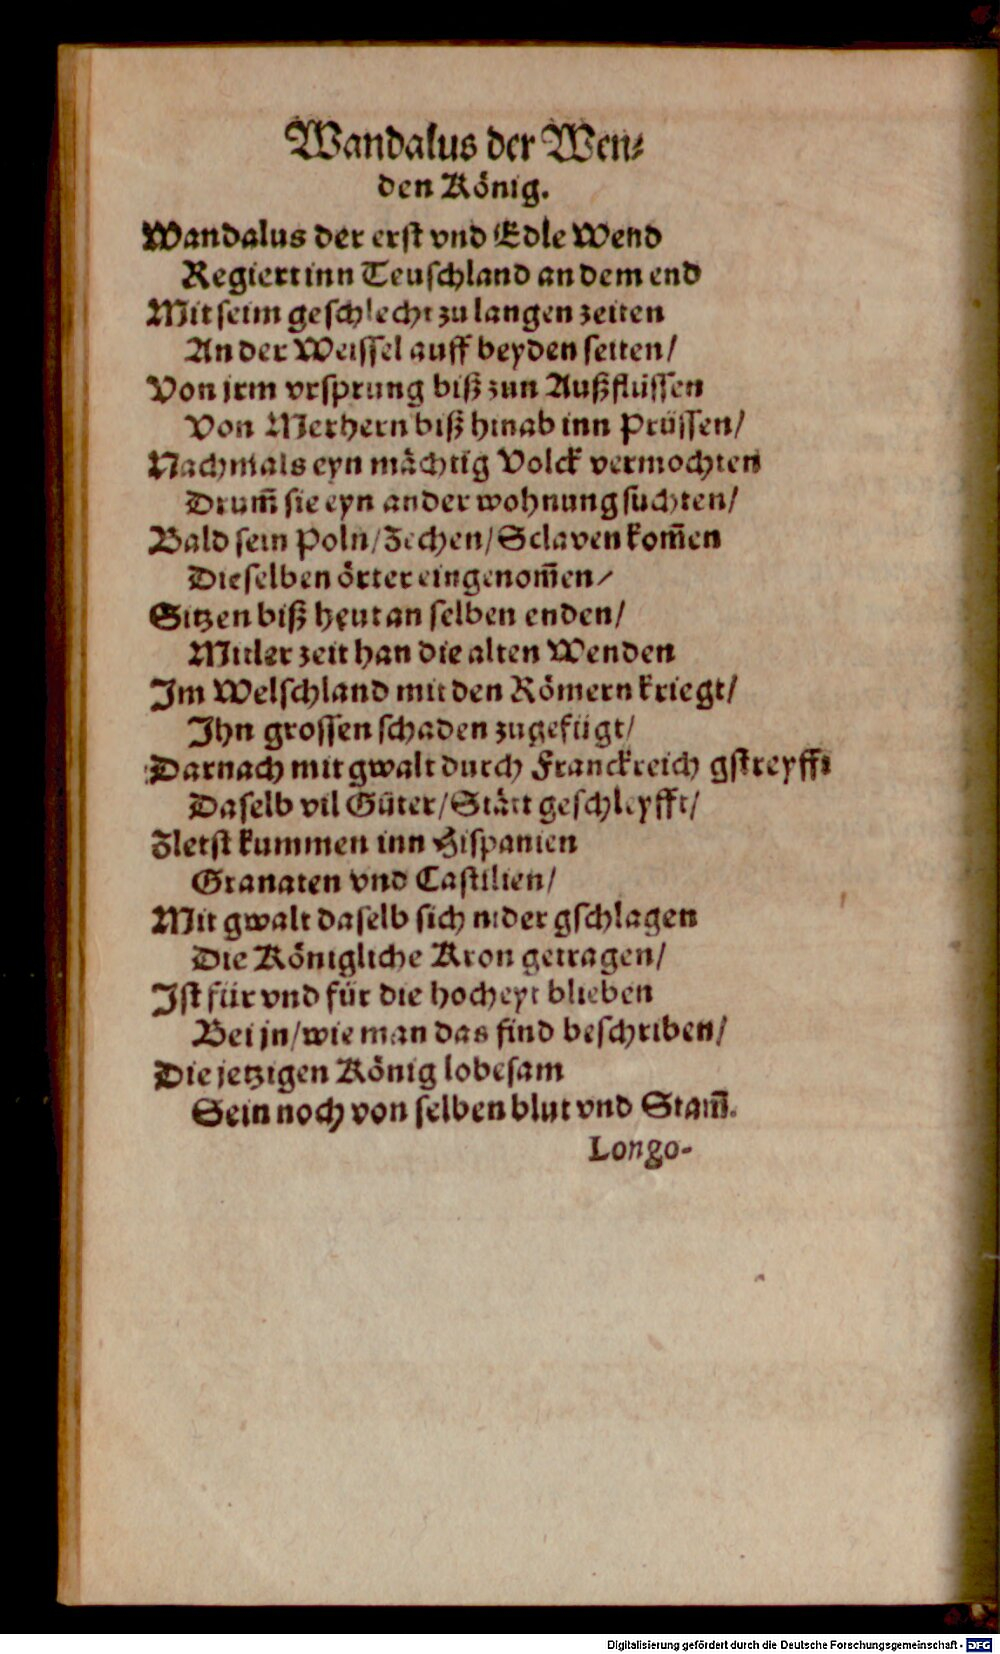 Wandalus der Wen⸗
den König.
Wandalus der erst vnd Edle Wend
Regiert inn Teuschland an dem end
Mit seim geschlecht zu langen zeiten
An der Weissel auff beyden seiten/
Von jrm vrsprung biß zun Außflüssen
Von Merhern biß hinab inn Prüssen/
Nachmals eyn mächtig Volck vermochten
Drum̃ sie eyn ander wohnung suchten/
Bald sein Poln/Zechen/Sclaven kom̃en
Dieselben örter eingenom̃en/
Sitzen biß heut an selben enden/
Mitler zeit han die alten Wenden
Im Welschland mit den Römern kriegt/
Ihn grossen schaden zugefügt/
Darnach mit gwalt durch Franckreich gstreyfft
Daselb vil Güter/Stätt geschleyfft/
Zletst kummen inn Hispanien
Granaten vnd Castilien/
Mit gwalt daselb sich nider gschlagen
Die Königliche Kron getragen/
Ist für vnd für die hocheyt blieben
Bei jn/wie man das find beschriben/
Die jetzigen König lobesam
Sein noch von selben blut vnd Stam̃.
Longo-
Digitalisierung gefördert durch die Deutsche Forschungsgemeinschaft - DFG